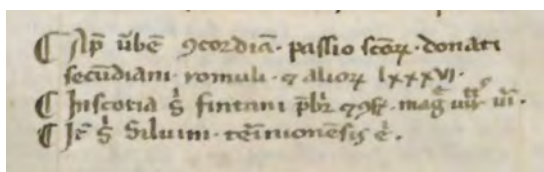 ¶ Ap̄ ubē ꝯcordiā · passio sc̄oꝝ · donati
secūdiani · romuli · ⁊ alioꝝ lxxxvi ·
¶ In scotia s̄ fintani pb̄r ⁊ ꝯf̄ · maḡ
¶ It̄ s̄ Siluini · teruonēsis ē .